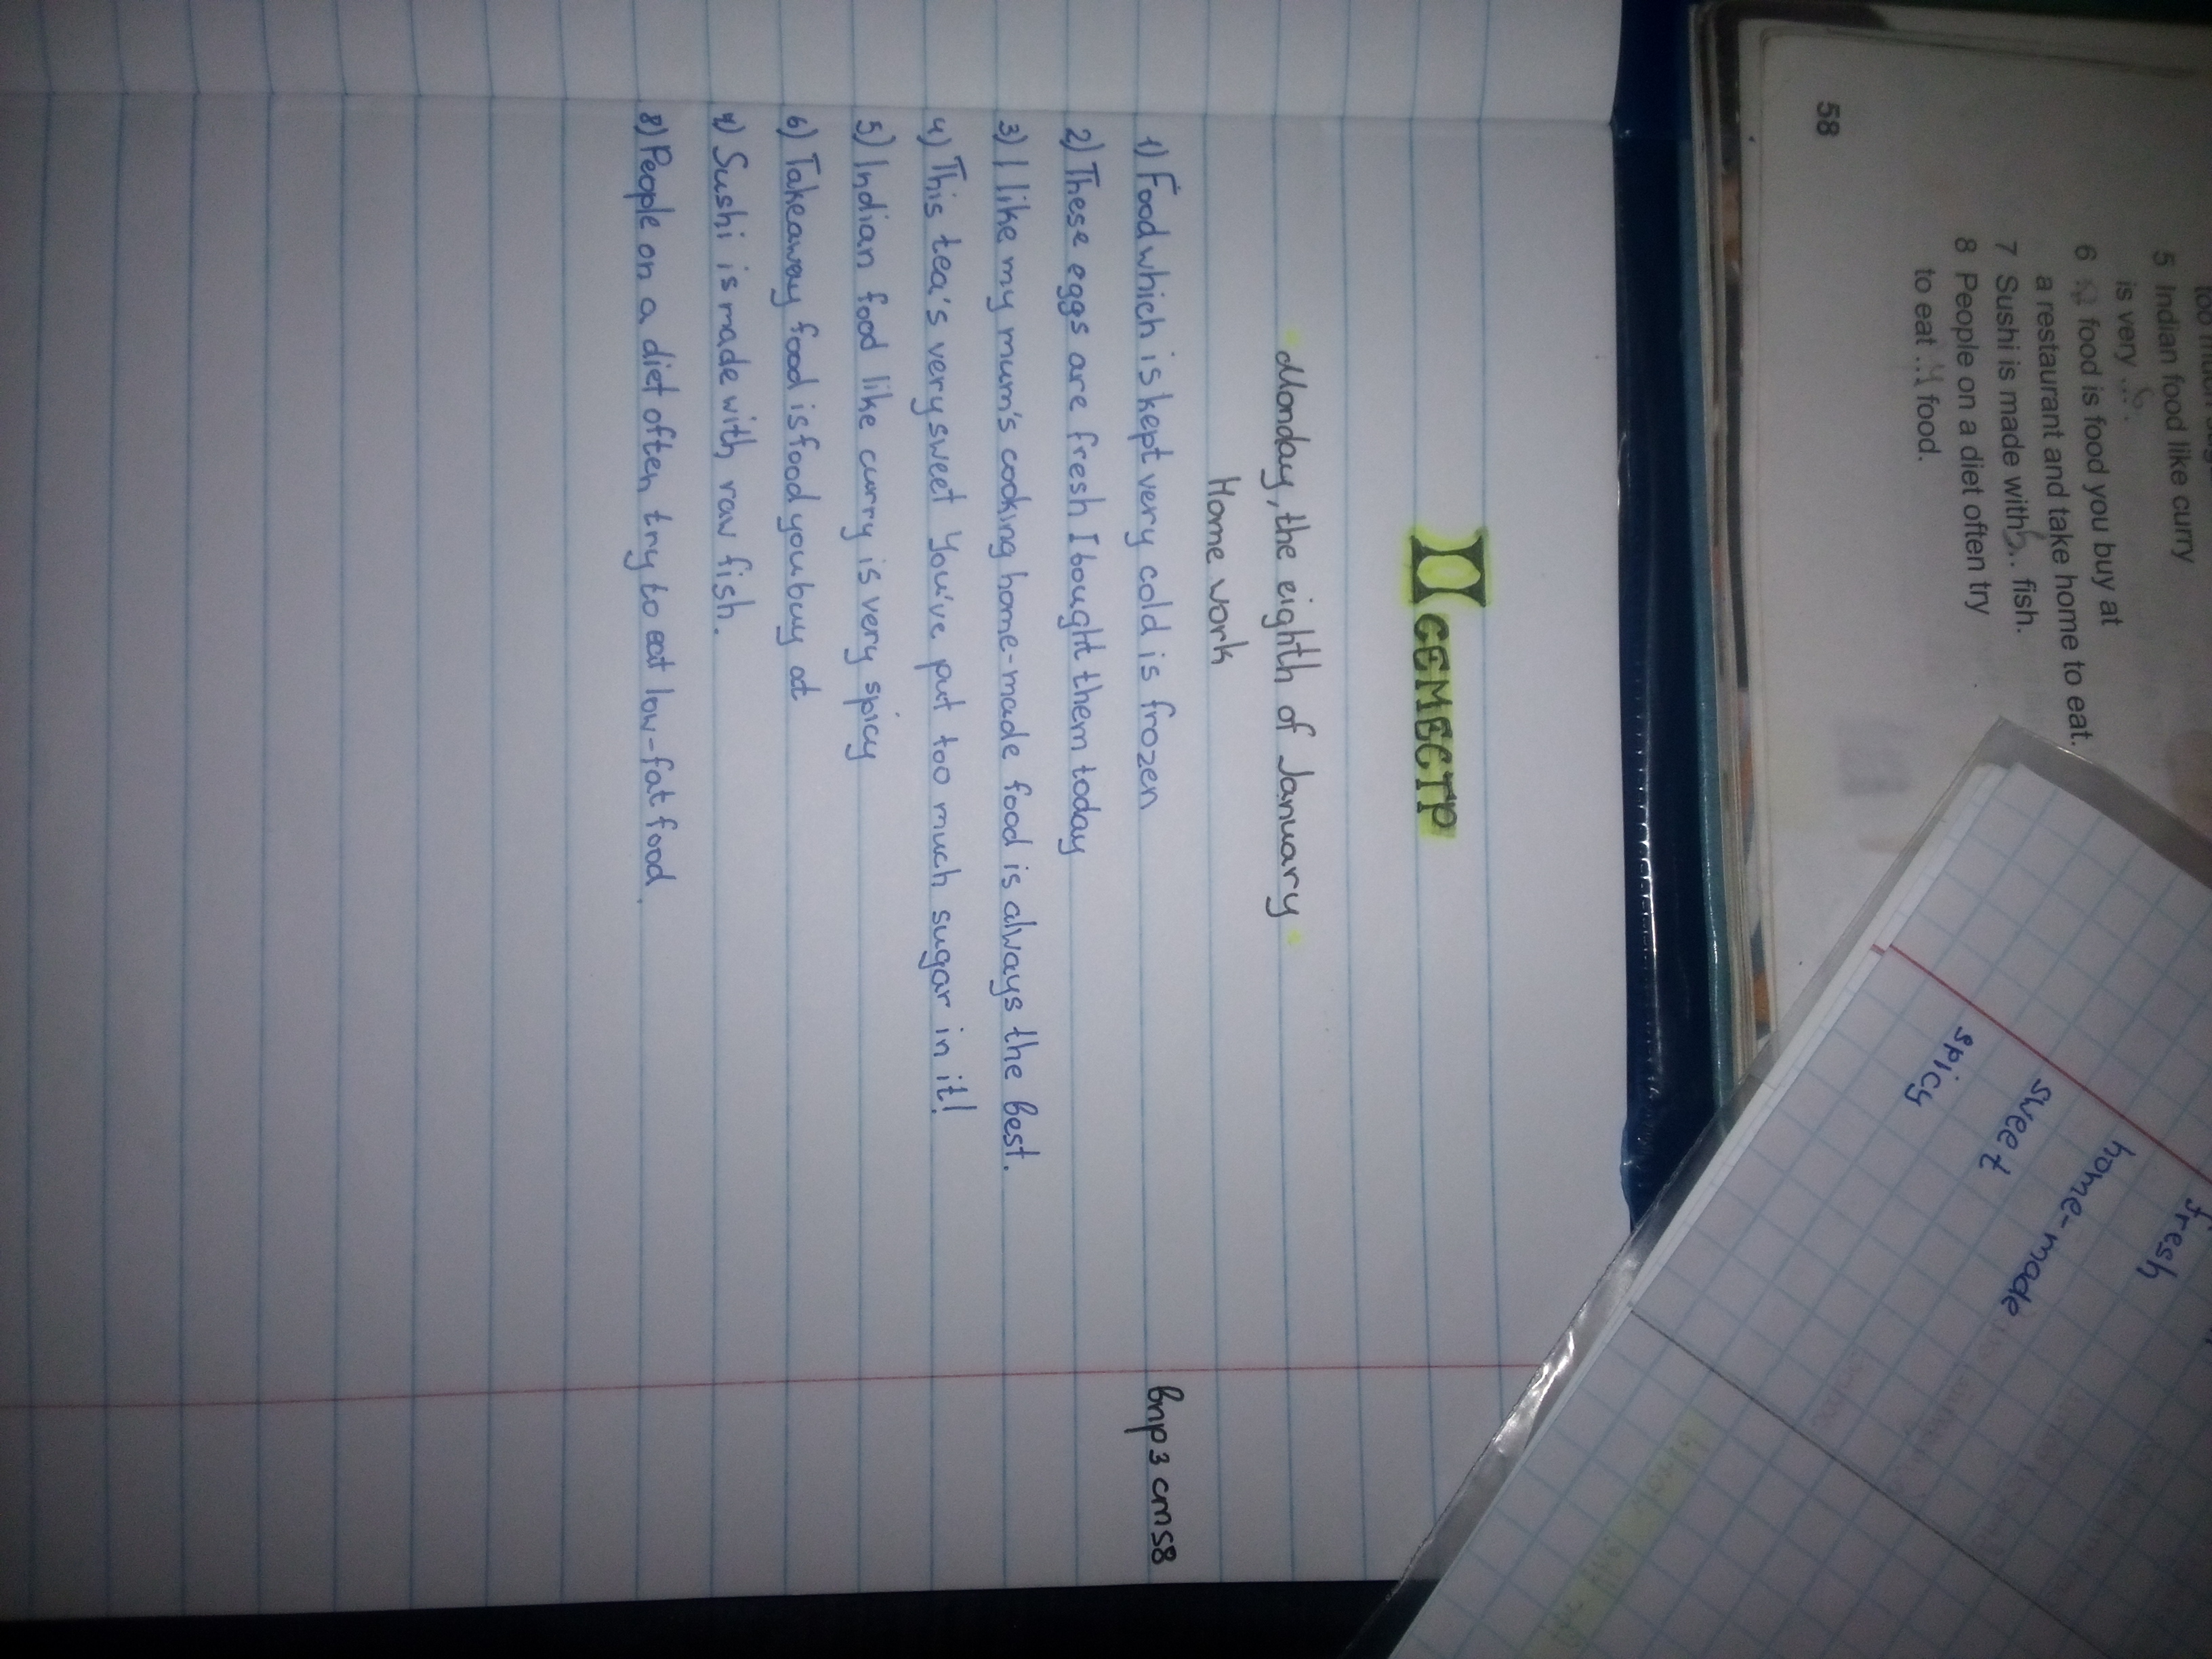 II СЕМЕСТР
Monday, the eighth of January
Home work
1) Food which is kept very cold is frozen
впр 3 ст 58
2) These eggs are fresh I bought them today
3) I like my mum's cooking home-made food is always the best.
4) This tea's very sweet You've put too much sugar in it!
5) Indian food like curry is very spicy
6) Takeaway food is food you buy at
7) Sushi is made with raw fish.
8) People on a diet often try to eat low-fat food.
5 Indian food like curry
is very ....
6 food is food you buy at
a restaurant and take home to eat.
7 Sushi is made with ... fish.
8 People on a diet often try
to eat ... food.
58
fresh
home-made
sweet
spicy